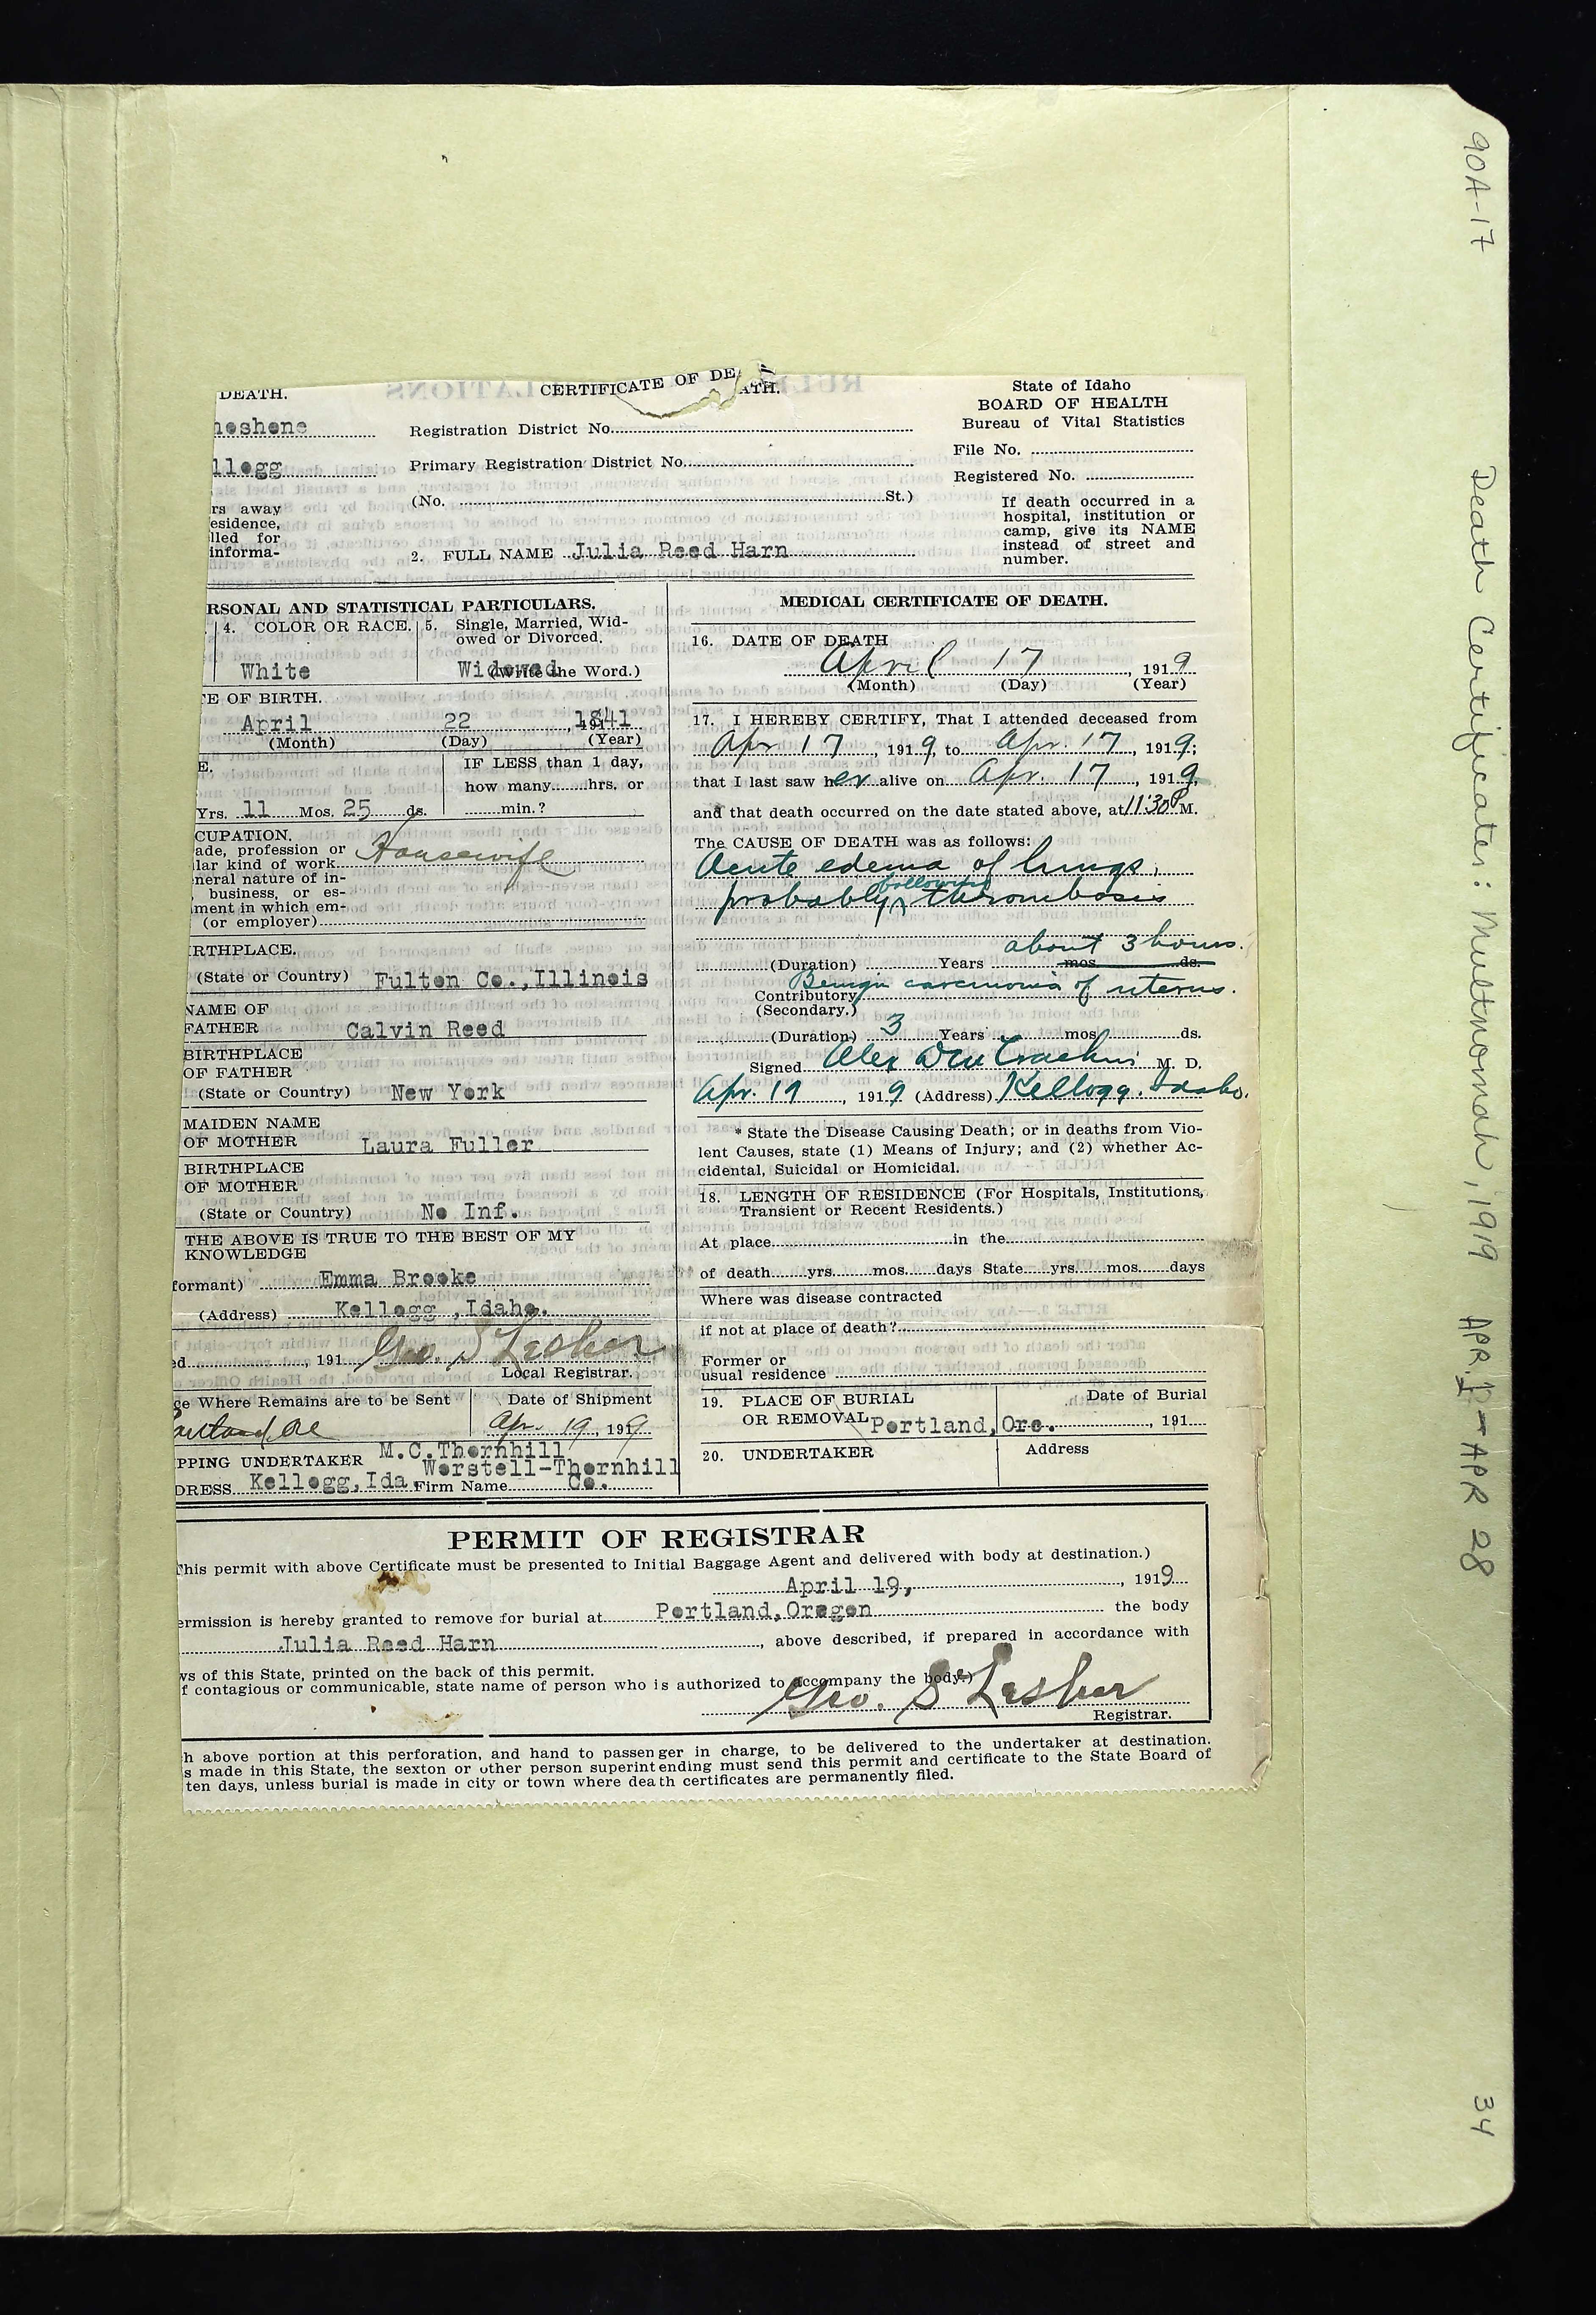 DEATH.
CERTIFICATE OF DEATH.
State of Idaho
BOARD OF HEALTH
Bureau of Vital Statistics
File No.
Registered No.
hoshone
Registration District No.
llogg
Primary Registration District No.
(No. St.)
If death occurred in a
hospital, institution or
camp, give its NAME
instead of street and
number.
rs away
esidence,
lled for
informa-
2. FULL NAME Julia Reed Harn
RSONAL AND STATISTICAL PARTICULARS.
4. COLOR OR RACE.
White
5. Single, Married, Wid-
owed or Divorced.
Widowed
(Write the Word.)
TE OF BIRTH.
April 22, 1841
(Month) (Day) (Year)
E.
Yrs. 11 Mos. 25 ds.
IF LESS than 1 day,
how many hrs. or
min.?
CUPATION.
ade, profession or
lar kind of work Housewife
neral nature of in-
business, or es-
ment in which em-
(or employer)
IRTHPLACE.
(State or Country) Fulton Co., Illinois
NAME OF
FATHER Calvin Reed
BIRTHPLACE
OF FATHER
(State or Country) New York
MAIDEN NAME
OF MOTHER Laura Fuller
BIRTHPLACE
OF MOTHER
(State or Country) No Inf.
THE ABOVE IS TRUE TO THE BEST OF MY
KNOWLEDGE
formant) Emma Brooke
(Address) Kellogg, Idaho.
ed , 191 Geo. S Lesher
Local Registrar.
ce Where Remains are to be Sent
Portland, Ore
Date of Shipment
Apr. 19, 1919
PPING UNDERTAKER M.C.Thornhill
Worstell-Thornhill
DRESS Kellogg, Ida. Firm Name Co.
MEDICAL CERTIFICATE OF DEATH.
16. DATE OF DEATH
April 17, 1919
(Month) (Day) (Year)
17. I HEREBY CERTIFY, That I attended deceased from
Apr 17, 1919, to Apr. 17, 1919;
that I last saw her alive on Apr. 17, 1919,
and that death occurred on the date stated above, at 11:30 P M.
The CAUSE OF DEATH was as follows:
Acute edema of lungs,
probably following thrombosis
about 3 hours.
(Duration) Years mos ds.
Contributory Benign carcinoma of uterus.
(Secondary.)
(Duration) 3 Years mos ds.
Signed Alex M. D.
Apr. 19, 1919 (Address) Kellogg. Idaho.
* State the Disease Causing Death; or in deaths from Vio-
lent Causes, state (1) Means of Injury; and (2) whether Ac-
cidental, Suicidal or Homicidal.
18. LENGTH OF RESIDENCE (For Hospitals, Institutions,
Transient or Recent Residents.)
At place in the
of death yrs. mos. days State yrs. mos. days
Where was disease contracted
if not at place of death?
Former or
usual residence
19. PLACE OF BURIAL
OR REMOVAL Portland, Ore.
Date of Burial
, 191
20. UNDERTAKER
Address
PERMIT OF REGISTRAR
This permit with above Certificate must be presented to Initial Baggage Agent and delivered with body at destination.)
April 19, , 1919
ermission is hereby granted to remove for burial at Portland, Oregon the body
Julia Reed Harn , above described, if prepared in accordance with
ws of this State, printed on the back of this permit.
f contagious or communicable, state name of person who is authorized to accompany the body.)
Geo. S Lesher
Registrar.
h above portion at this perforation, and hand to passenger in charge, to be delivered to the undertaker at destination.
s made in this State, the sexton or other person superintending must send this permit and certificate to the State Board of
ten days, unless burial is made in city or town where death certificates are permanently filed.
90A-17 Death Certificates: Multnomah, 1919 APR 1 - APR 28 34